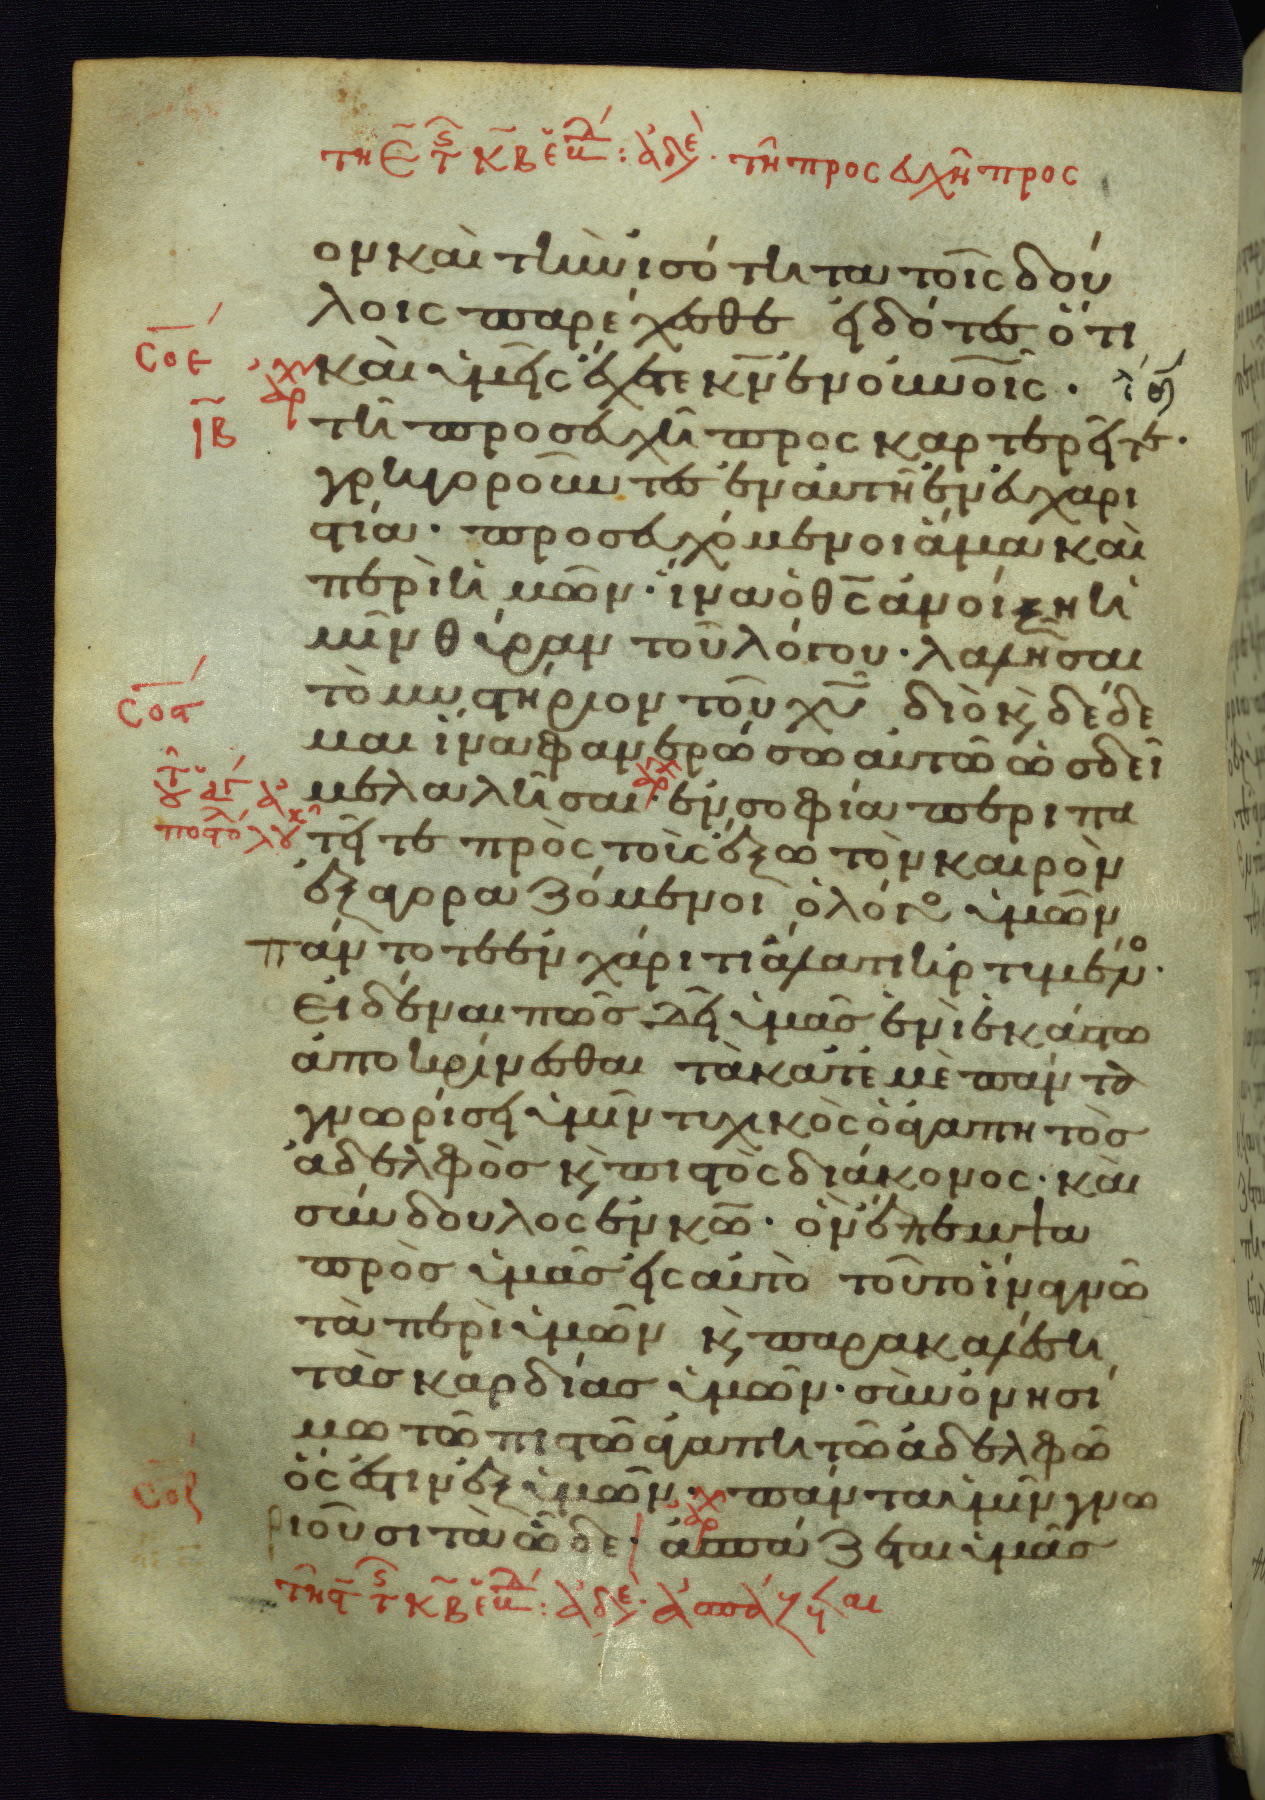 τη ε τ κβ εβ : ἀδε. τῆ προσευχῆ προς
ον καὶ τὴν ισότητα τοῖς δού
λοις παρέχεσθε εἰδότες ὅτι
καὶ ὑμεῖς ἔχετε κν ἐν οὐνοῖς·
τῆ προσευχῆ προσκαρτερεῖτε·
γρηγοροῦντες ἐν αυτῆ ἐν εὐχαρι
στία· προσευχόμενοι ἅμα καὶ
περὶ ἡμῶν· ἵνα ὁ θς ἀνοίξη ἡ
μῖν θύραν τοῦ λόγου· λαλῆσαι
τὸ μυστήριον τοῦ χυ διὸ κ δέδε
μαι ἵνα φανερώσω αυτῶ ὡσ δεῖ
με λαλῆσαι· ἐν σοφία περιπα
τεῖτε πρὸς τοὺς ἔξω τὸν καιρὸν
ἐξαγοραζόμενοι ὁ λόγος ὑμῶν
πάντοτε ἐν χάριτι ἅλατι ἠρτυμένος·
Ειδέναι πῶσ δεῖ ὑμᾶσ ἑνὶ ἑκάστω
ἀποκρίνεσθαι τὰ κατ έμὲ πάντα
γνωρίσει ὑμῖν τυχικὸς ὁ ἀγαπητὸσ
ἀδελφὸσ κ πιστὸς διάκονος· καὶ
σύνδουλος ἐν κω· ὃν ἔπεμψα
πρὸσ ὑμᾶσ εἰς αὐτὸ τοῦτο ἵνα γνῶ
τὰ περὶ ὑμῶν κ παρακαλέση
τὰσ καρδίασ ὑμῶν· σὺν ὀνησί
μω τῶ πιστῶ ἀγαπητῶ ἀδελφῶ
ὅς ἐστιν ἐξ ὑμῶν· πάντα ὑμῖν γνω
ριοῦσι τὰ ὧδε· ἀσπάζεται ὑμᾶσ
σοε
ιβ
σος
σοζ